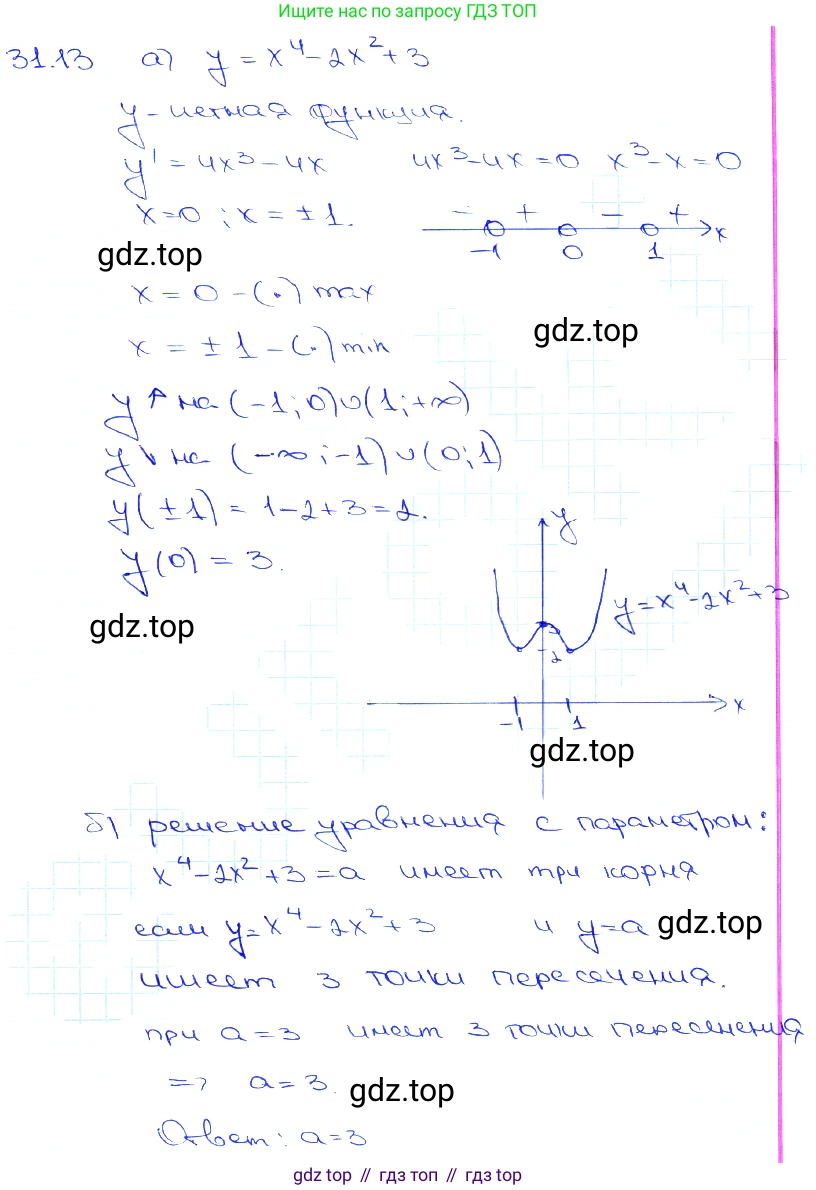 Ищите нас по запросу ГДЗ ТОП
31.13 а) y = x⁴ - 2x² + 3
y - четная функция.
y' = 4x³ - 4x 4x³ - 4x = 0 x³ - x = 0
x = 0 ; x = ± 1.
- + - + x
-1 0 1
gdz.top
x = 0 - (·) max
x = ± 1 - (·) min
gdz.top
y ↑ на (-1; 0) ∪ (1; +∞)
y ↓ на (-∞; -1) ∪ (0; 1)
y(±1) = 1 - 2 + 3 = 2.
y(0) = 3.
y
y = x⁴ - 2x² + 3
gdz.top
3
2
x
-1 1
gdz.top
б) решение уравнения с параметром:
x⁴ - 2x² + 3 = a имеет три корня
если y = x⁴ - 2x² + 3 и y = a gdz.top
имеет 3 точки пересечения.
при a = 3 имеет 3 точки пересечения
=> a = 3. gdz.top
Ответ: a = 3
gdz top // гдз топ // gdz.top